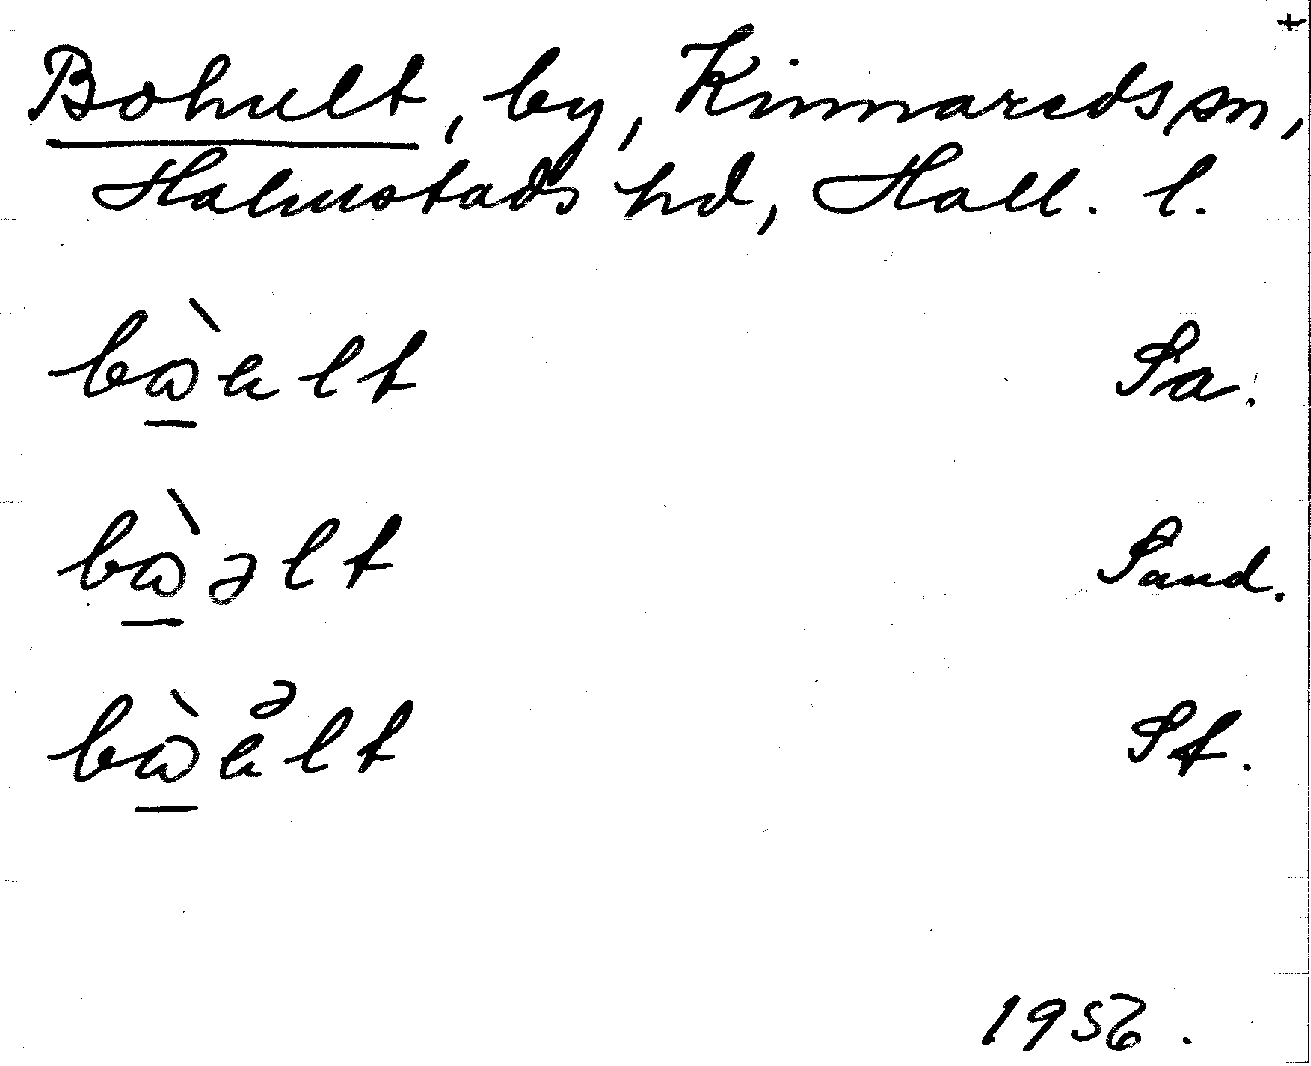 +
Bohult, by, Kinnareds sn,
Halmstads hd, Hall. l.
bὼ̲ɐlt Sa.
bὼ̲əlt Sand.
bὼ̲ɐᵊlt St.
1956.